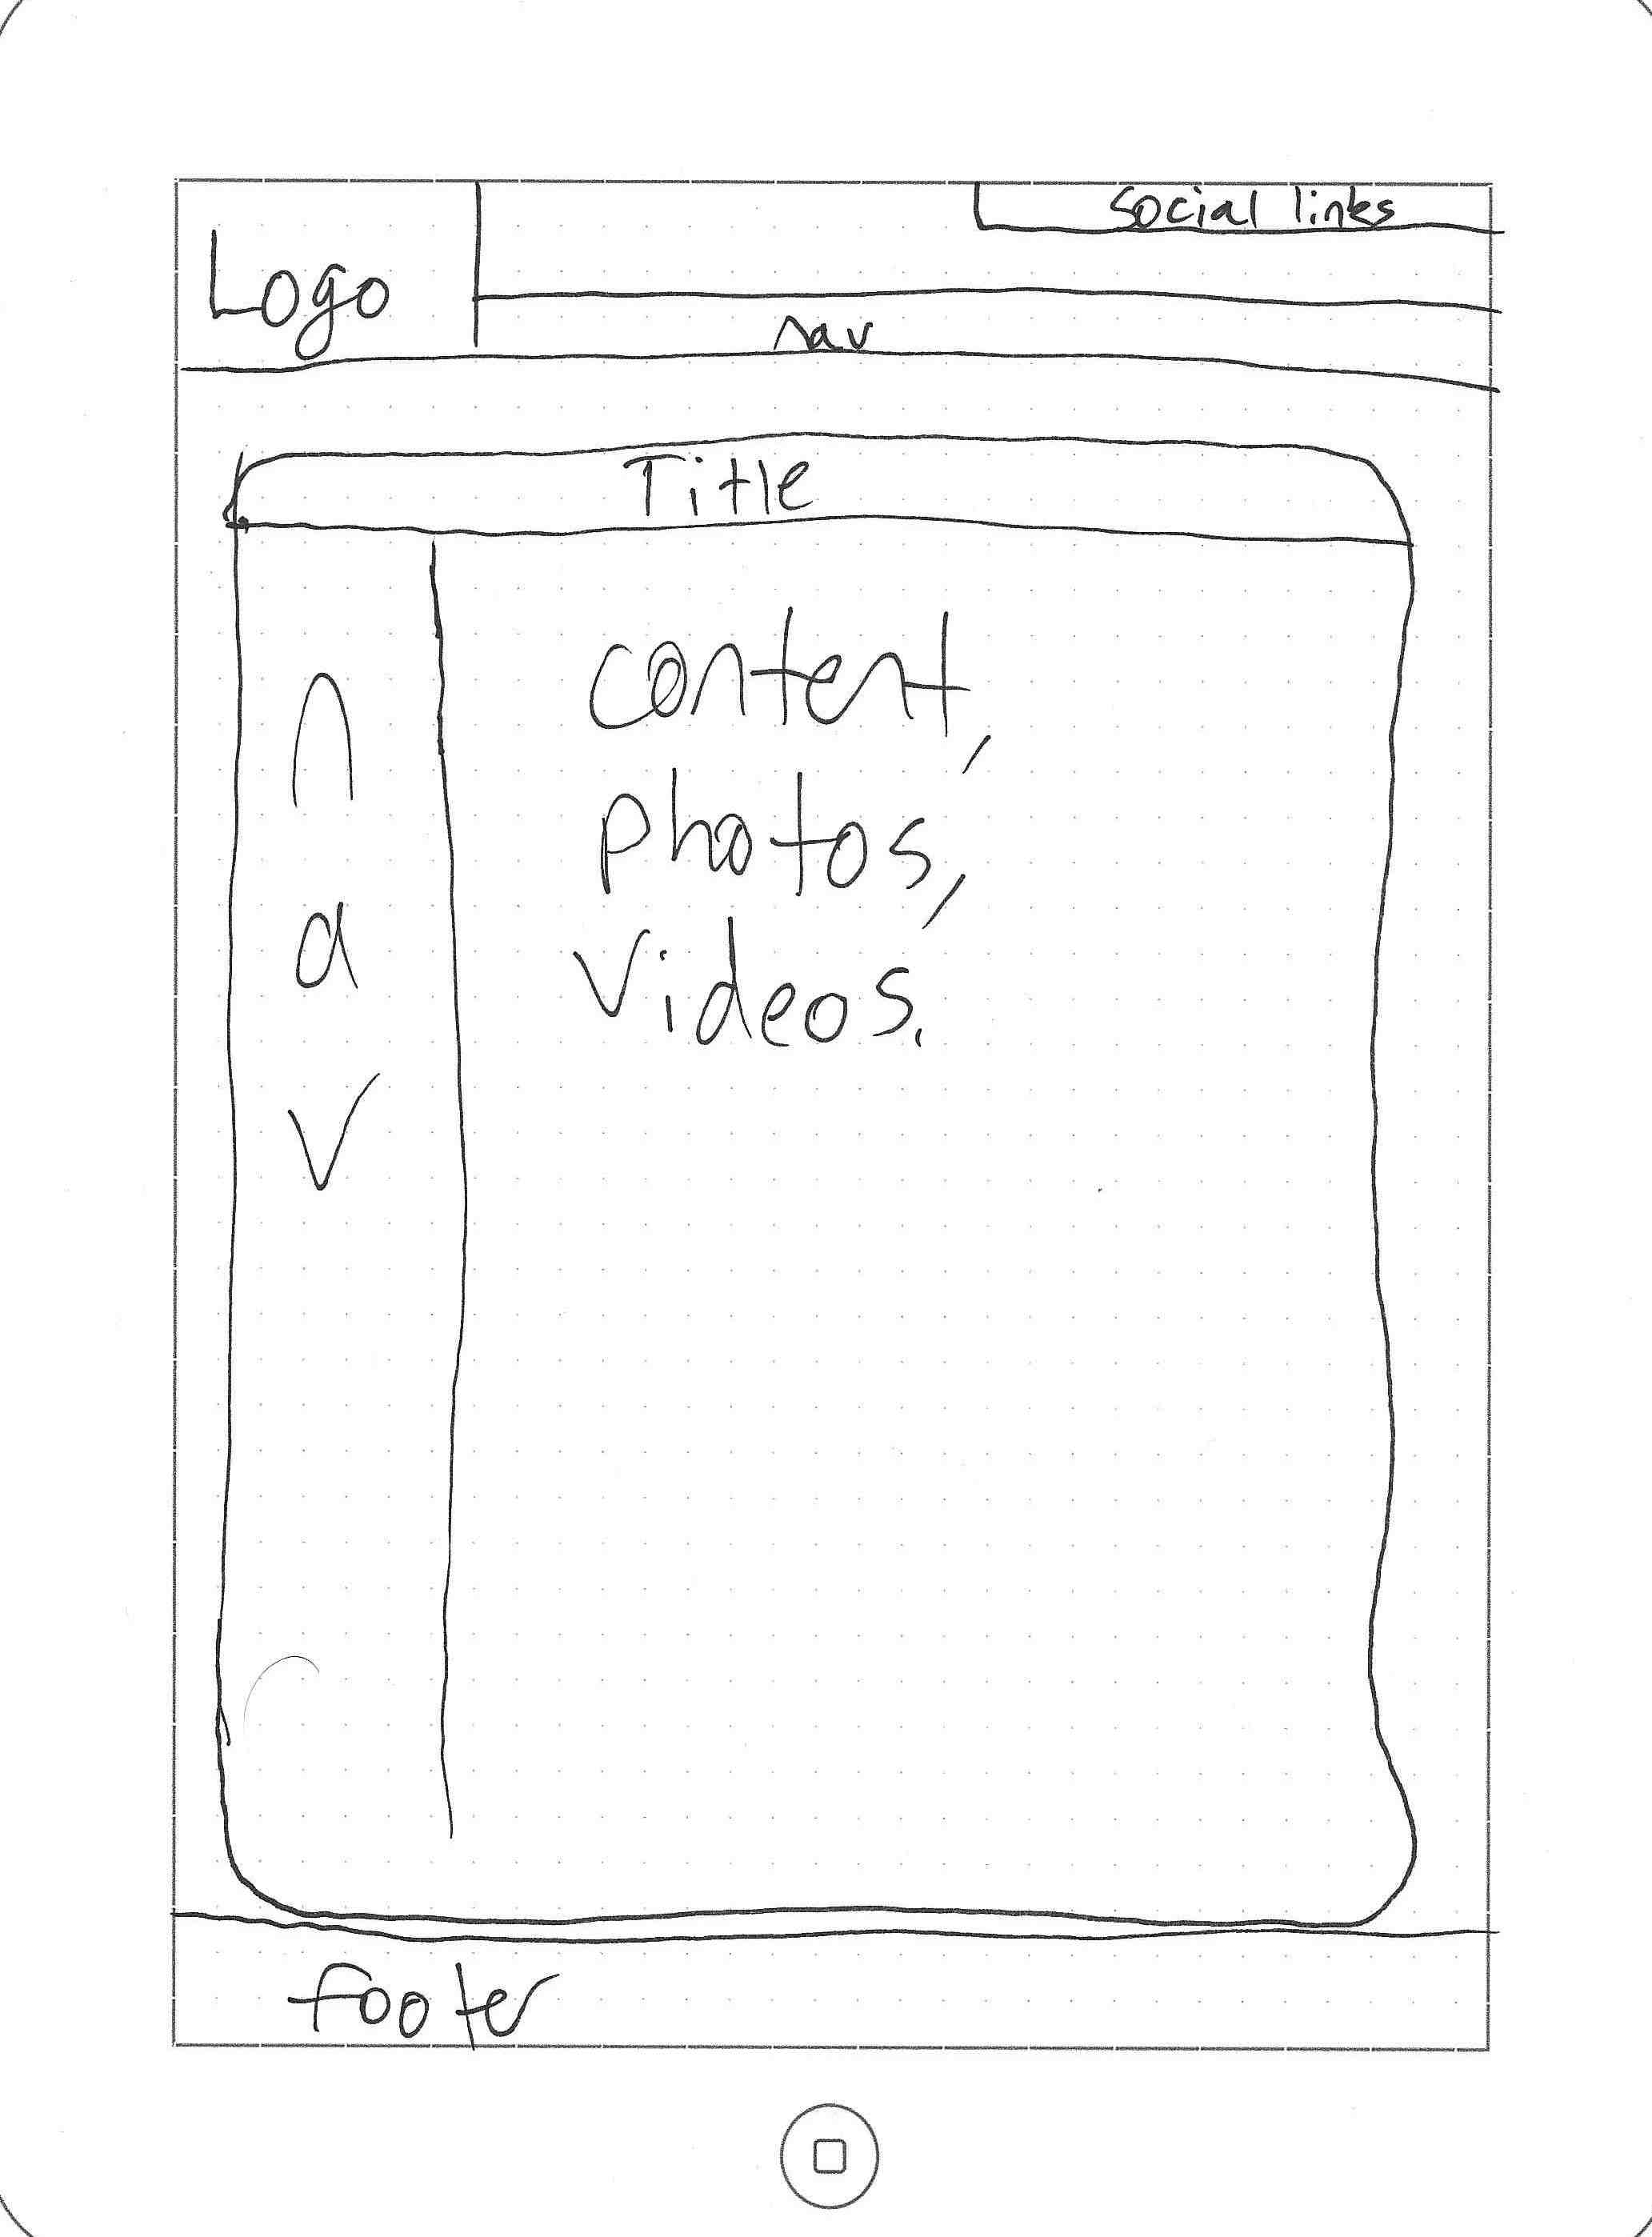 Social links
Logo
nav
Title
nav
content,
photos,
Videos.
footer